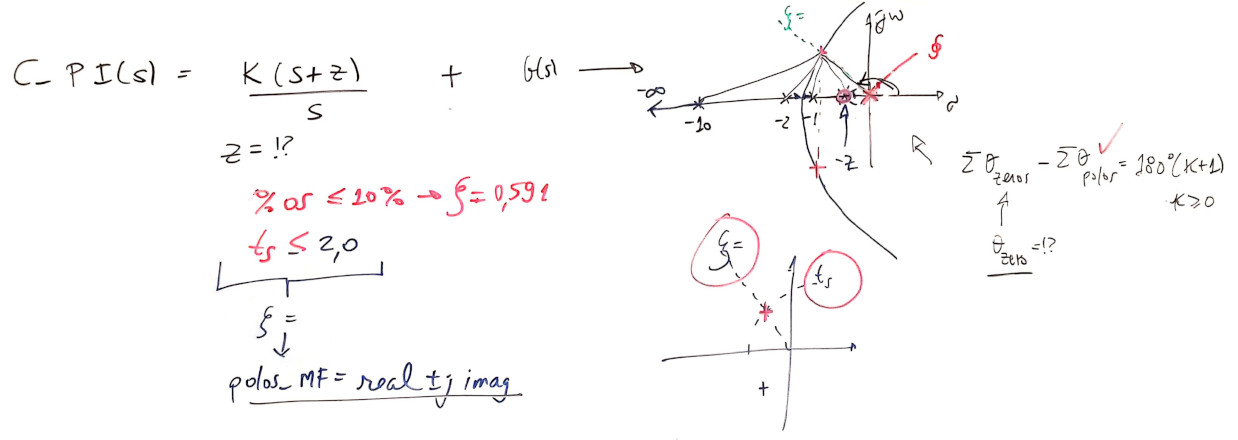 C_PI(s) = K(s+z)/s + G(s) →
z = !?
%OS ≤ 10% → ξ = 0,591
ts ≤ 2,0
ξ =
polos_MF = real ± j imag
ξ =
jω
σ
-∞
-10
-2
-1
-z
Σθzeros - Σθpolos = 180°(K+1)
K ≥ 0
θzero = !?
ξ =
ts
+